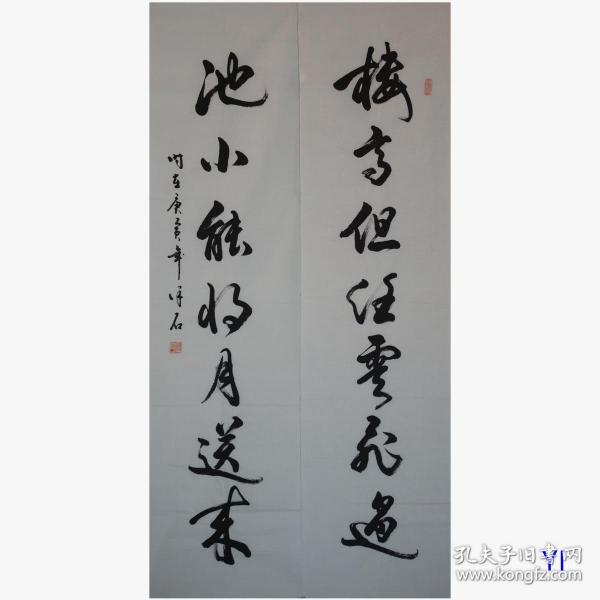 楼高但任雲飛過
池小能将月送来
时在庚寅年祥石
孔夫子旧书网
www.kongfz.com